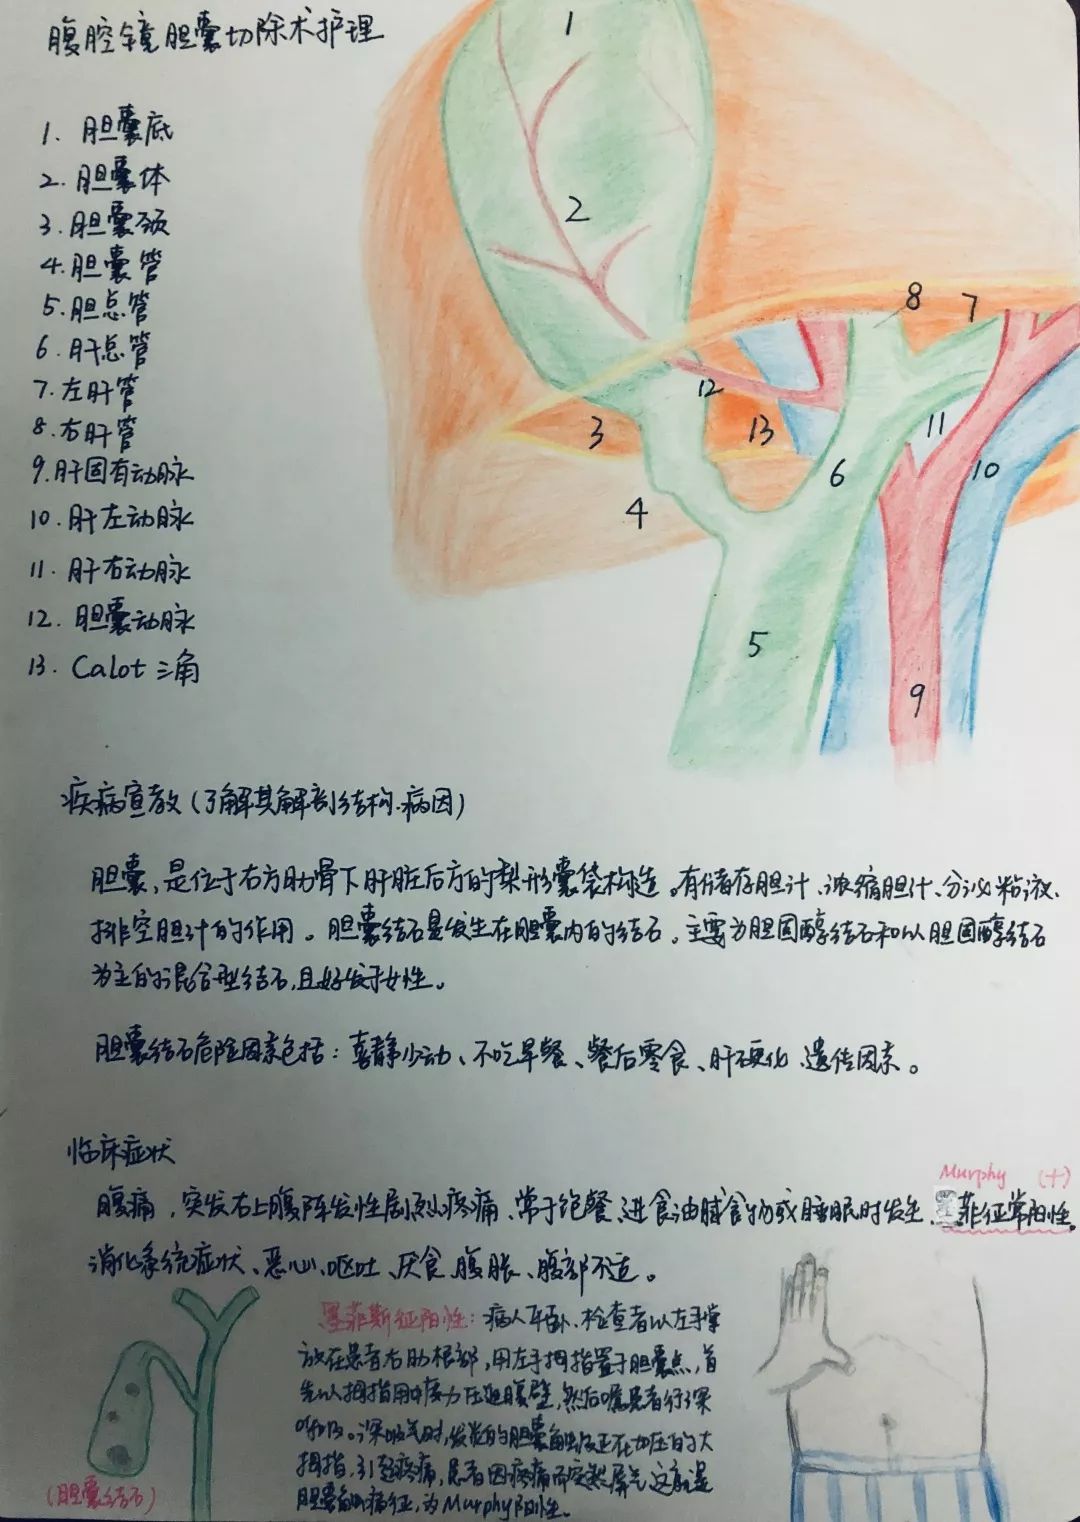 腹腔镜胆囊切除术护理
1
1. 胆囊底
2. 胆囊体
3. 胆囊颈
2
4. 胆囊管
5. 胆总管
8
7
6. 肝总管
7. 左肝管
12
8. 右肝管
3
13
11
9. 肝固有动脉
6
10
10. 肝左动脉
4
11. 肝右动脉
12. 胆囊动脉
5
13. Calot 三角
9
疾病宣教(了解其解剖结构、病因)
胆囊,是位于右方肋骨下肝脏后方的梨形囊袋构造。有储存胆汁、浓缩胆汁、分泌粘液、
排空胆汁的作用。胆囊结石是发生在胆囊内的结石。主要为胆固醇结石和以胆固醇结石
为主的混合型结石,且好发于女性。
胆囊结石危险因素包括:喜静少动、不吃早餐、餐后零食、肝硬化、遗传因素。
临床症状
Murphy (+)
腹痛,突发右上腹阵发性剧烈疼痛、常于饱餐、进食油腻食物或睡眠时发生、墨菲征常阳性。
消化系统症状、恶心、呕吐、厌食、腹胀、腹部不适。
墨菲斯征阳性:病人平卧、检查者以左手掌
放在患者右肋根部,用左手拇指置于胆囊点,首
先以拇指用中度力压迫腹壁,然后嘱患者行深
呼吸。深吸气时,发炎的胆囊触及正在加压的大
拇指,引起疼痛,患者因疼痛而突然屏气,这就是
胆囊触痛征,为Murphy阳性。
(胆囊结石)